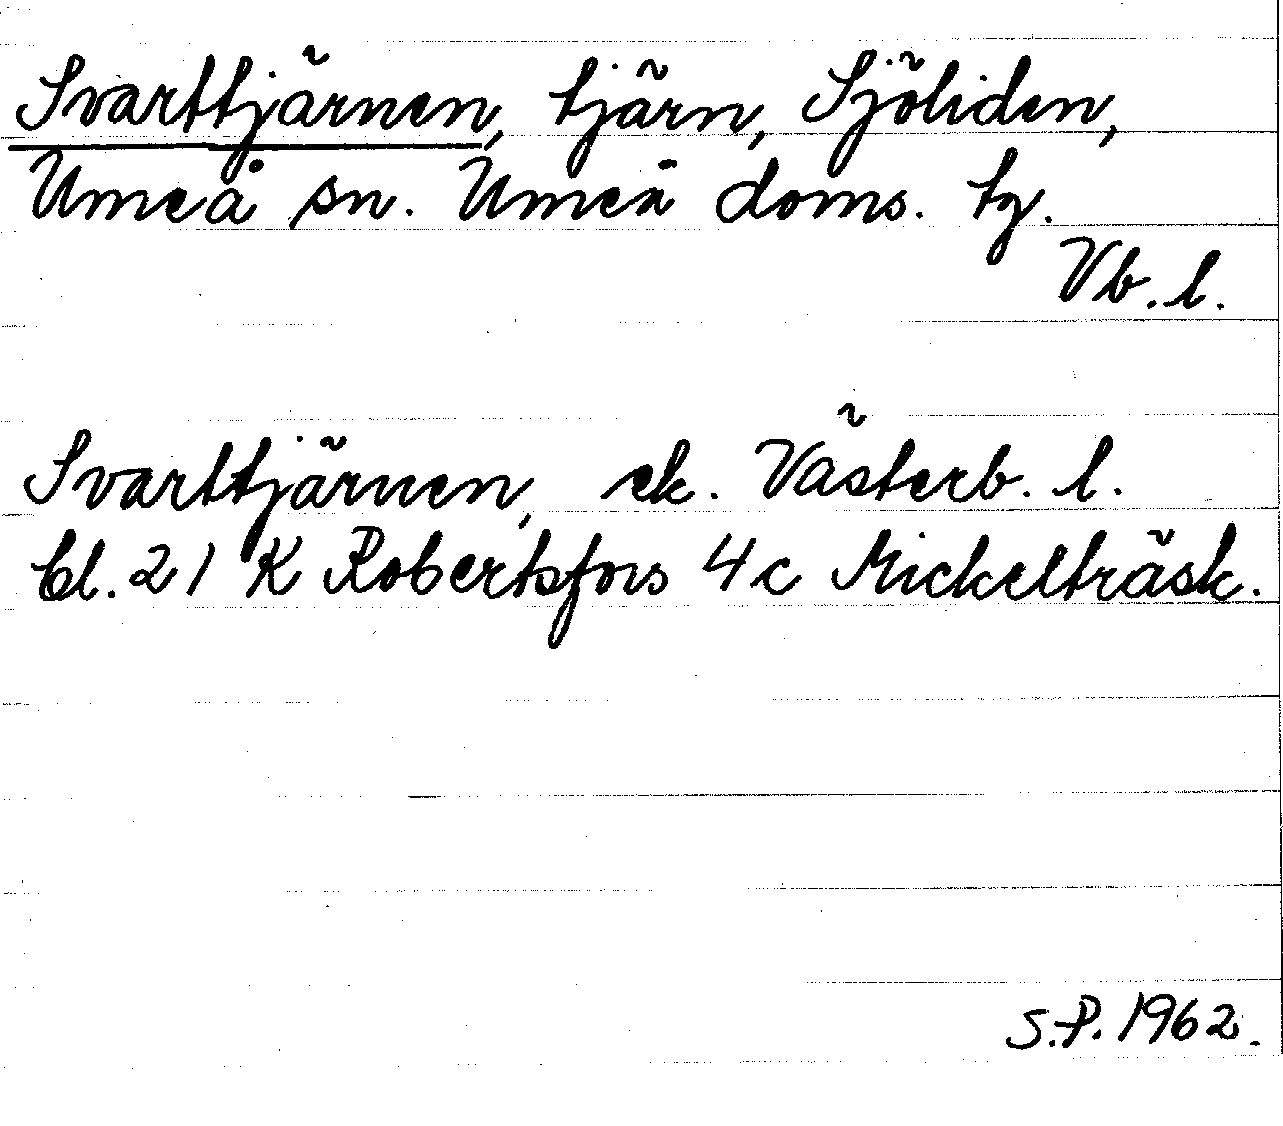 Svarttjärnen, tjärn, Sjöliden,
Umeå sn. Umeå doms. tg.
Vb. l.
Svarttjärnen, ek. Västerb. l.
bl. 21 K Robertsfors 4c Mickelträsk.
S.P. 1962.